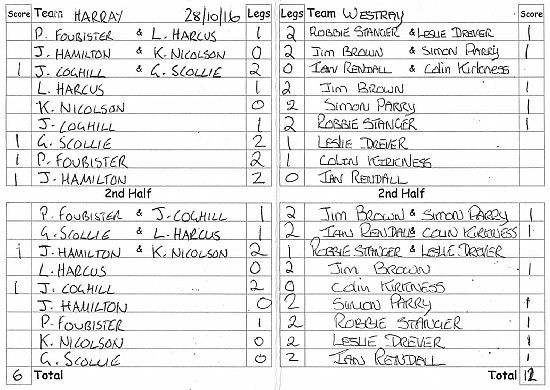 Score Team HARRAY 28/10/16 Legs Legs Team WESTRAY Score
P. FOUBISTER & L. HARCUS 1 2 ROBBIE STANGER & LESLIE DREVER 1
J. HAMILTON & K. NICOLSON 0 2 JIM BROWN & SIMON PARRY 1
1 J. COGHILL & G. SCOLLIE 2 0 IAN RENDALL & COLIN KIRKNESS
L. HARCUS 1 2 JIM BROWN 1
K. NICOLSON 0 2 SIMON PARRY 1
J. COGHILL 1 2 ROBBIE STANGER 1
1 G. SCOLLIE 2 1 LESLIE DREVER
1 P. FOUBISTER 2 1 COLIN KIRKNESS
1 J. HAMILTON 2 0 IAN RENDALL
2nd Half 2nd Half
P. FOUBISTER & J. COGHILL 1 2 JIM BROWN & SIMON PARRY 1
G. SCOLLIE & L. HARCUS 1 2 IAN RENDALL & COLIN KIRKNESS 1
1 J. HAMILTON & K. NICOLSON 2 1 ROBBIE STANGER & LESLIE DREVER
L. HARCUS 0 2 JIM BROWN 1
1 J. COGHILL 2 0 COLIN KIRKNESS
J. HAMILTON 0 2 SIMON PARRY 1
P. FOUBISTER 1 2 ROBBIE STANGER 1
K. NICOLSON 0 2 LESLIE DREVER 1
G. SCOLLIE 0 2 IAN RENDALL 1
6 Total Total 12